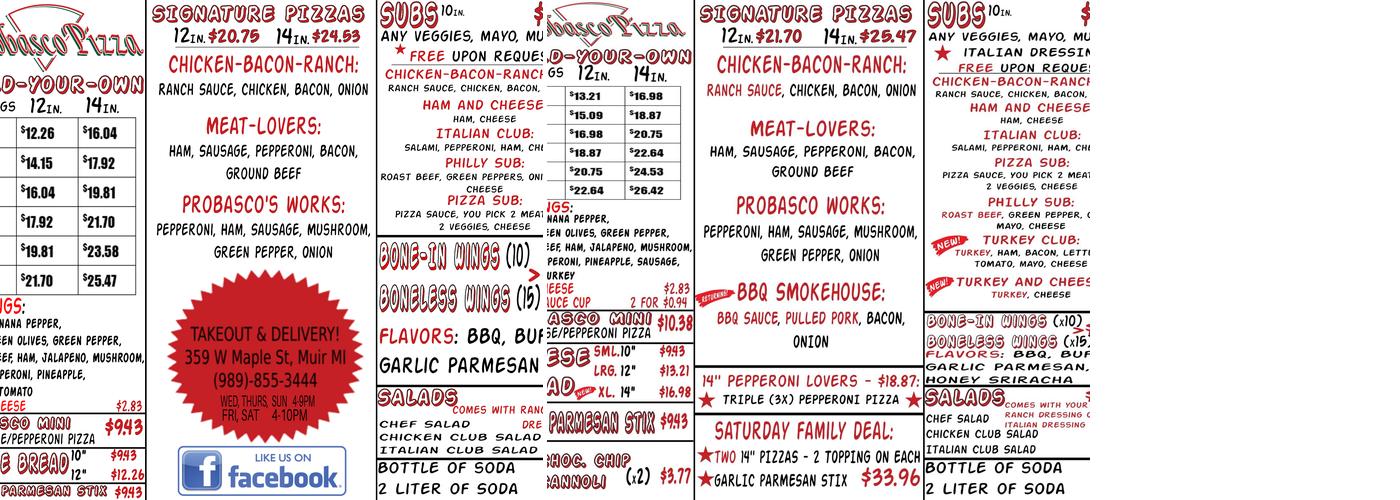 Pizza
12IN. 14IN.
$12.26 $16.04
$14.15 $17.92
$16.04 $19.81
$17.92 $21.70
$19.81 $23.58
$21.70 $25.47
GREEN PEPPER,
HAM, JALAPENO, MUSHROOM,
PINEAPPLE,
TOMATO
$2.83
MINI $9.43
PIZZA
BREAD 10" $9.43
12" $12.26
PARMESAN STIX $9.43
SIGNATURE PIZZAS
12IN. $20.75 14IN. $24.53
CHICKEN-BACON-RANCH:
RANCH SAUCE, CHICKEN, BACON, ONION
MEAT-LOVERS:
HAM, SAUSAGE, PEPPERONI, BACON,
GROUND BEEF
PROBASCO'S WORKS:
PEPPERONI, HAM, SAUSAGE, MUSHROOM,
GREEN PEPPER, ONION
TAKEOUT & DELIVERY!
359 W Maple St, Muir MI
(989)-855-3444
WED, THURS, SUN 4-9PM
FRI, SAT 4-10PM
LIKE US ON
facebook
SUBS 10IN.
ANY VEGGIES, MAYO,
FREE UPON
CHICKEN-BACON-RANCH
RANCH SAUCE, CHICKEN, BACON,
HAM AND CHEESE
HAM, CHEESE
ITALIAN CLUB:
SALAMI, PEPPERONI, HAM,
PHILLY SUB:
ROAST BEEF, GREEN PEPPERS,
CHEESE
PIZZA SUB:
PIZZA SAUCE, YOU PICK 2
2 VEGGIES, CHEESE
BONE-IN WINGS (10)
BONELESS WINGS (15)
FLAVORS: BBQ,
GARLIC PARMESAN
SALADS
COMES WITH
CHEF SALAD
CHICKEN CLUB SALAD
ITALIAN CLUB SALAD
BOTTLE OF SODA
2 LITER OF SODA
Pizza
12IN. 14IN.
$13.21 $16.98
$15.09 $18.87
$16.98 $20.75
$18.87 $22.64
$20.75 $24.53
$22.64 $26.42
GREEN PEPPER,
HAM, JALAPENO, MUSHROOM,
PINEAPPLE, SAUSAGE,
$2.83
CUP 2 FOR $0.94
MINI $10.38
PIZZA
SML. 10" $9.43
LRG. 12" $13.21
NEW! XL. 14" $16.98
PARMESAN STIX $9.43
CHIP
(x2) $3.77
SIGNATURE PIZZAS
12IN. $21.70 14IN. $25.47
CHICKEN-BACON-RANCH:
RANCH SAUCE, CHICKEN, BACON, ONION
MEAT-LOVERS:
HAM, SAUSAGE, PEPPERONI, BACON,
GROUND BEEF
PROBASCO WORKS:
PEPPERONI, HAM, SAUSAGE, MUSHROOM,
GREEN PEPPER, ONION
RETURNING! BBQ SMOKEHOUSE:
BBQ SAUCE, PULLED PORK, BACON,
ONION
14" PEPPERONI LOVERS - $18.87:
TRIPLE (3X) PEPPERONI PIZZA
SATURDAY FAMILY DEAL:
TWO 14" PIZZAS - 2 TOPPING ON EACH
GARLIC PARMESAN STIX $33.96
SUBS 10IN.
ANY VEGGIES, MAYO,
ITALIAN
FREE UPON
CHICKEN-BACON-RANCH
RANCH SAUCE, CHICKEN, BACON,
HAM AND CHEESE
HAM, CHEESE
ITALIAN CLUB:
SALAMI, PEPPERONI, HAM,
PIZZA SUB:
PIZZA SAUCE, YOU PICK 2
2 VEGGIES, CHEESE
PHILLY SUB:
ROAST BEEF, GREEN PEPPER,
MAYO, CHEESE
NEW! TURKEY CLUB:
TURKEY, HAM, BACON,
TOMATO, MAYO, CHEESE
NEW! TURKEY AND
TURKEY, CHEESE
BONE-IN WINGS (x10)
BONELESS WINGS (x15)
FLAVORS: BBQ,
GARLIC PARMESAN,
HONEY SRIRACHA
SALADS
COMES WITH YOUR
RANCH DRESSING
ITALIAN DRESSING
CHEF SALAD
CHICKEN CLUB SALAD
ITALIAN CLUB SALAD
BOTTLE OF SODA
2 LITER OF SODA